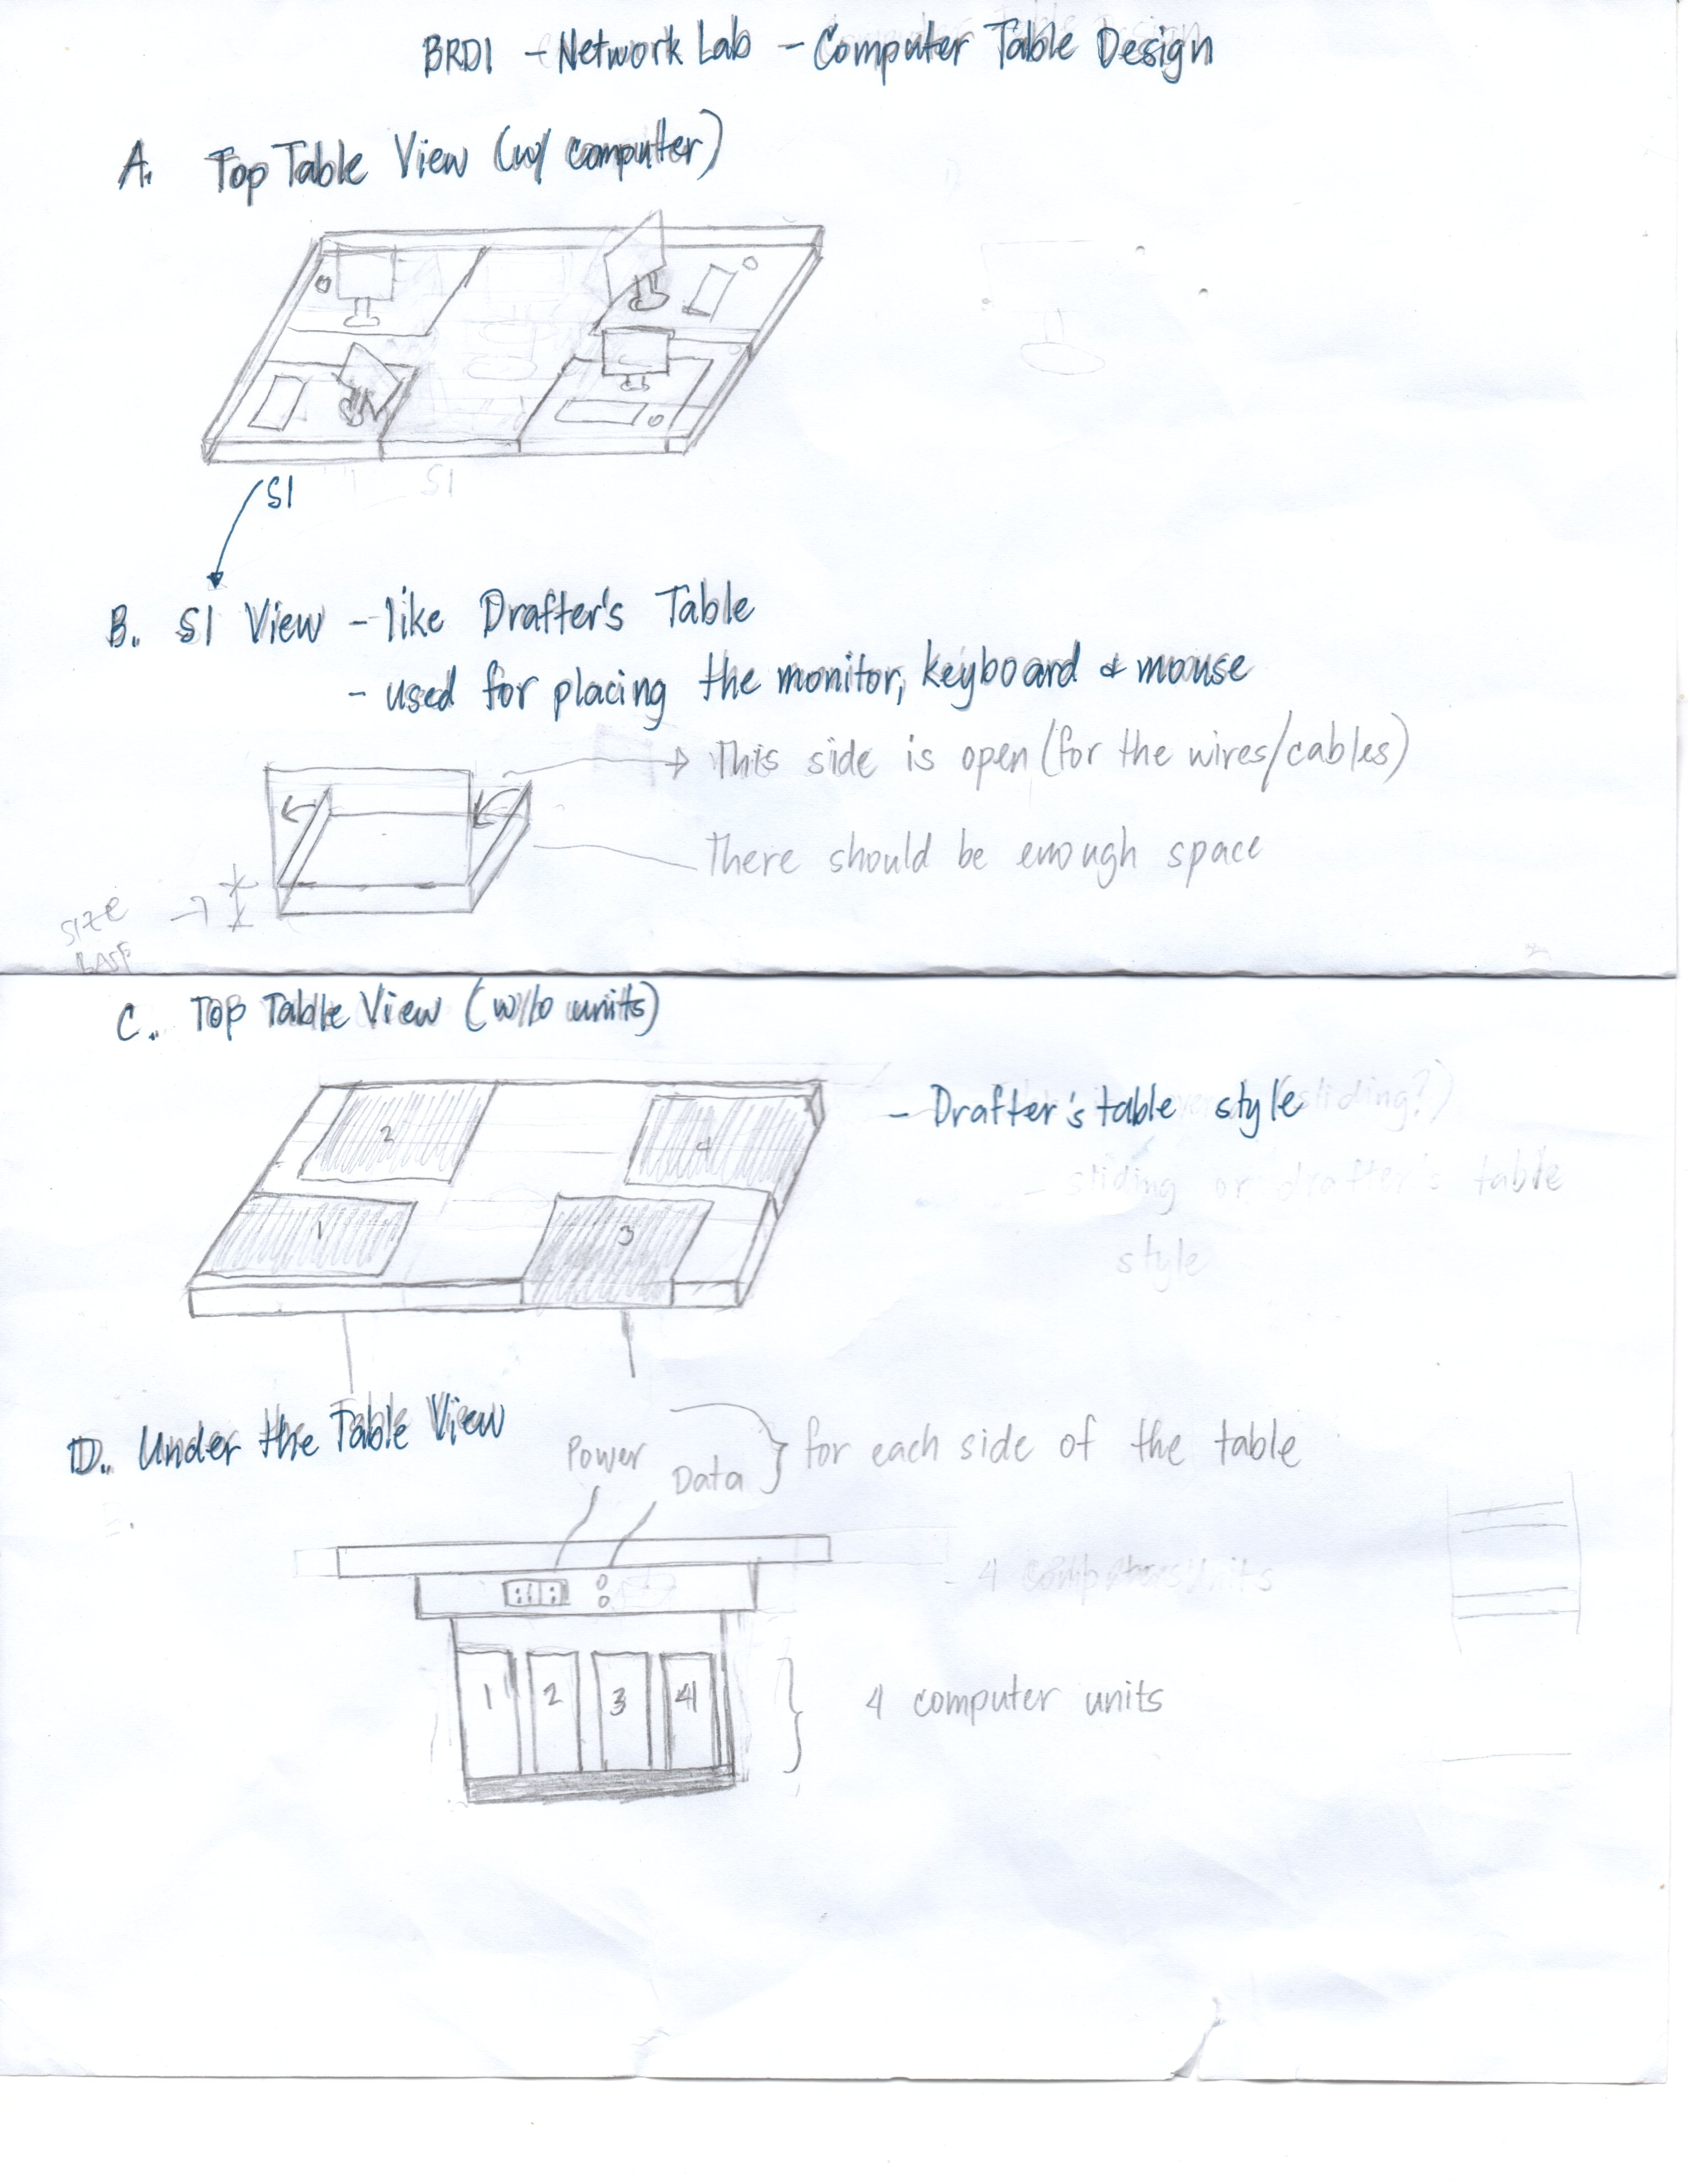 BRD1 - Network Lab - Computer Table Design
A. Top Table View (w/ computer)
S1
S1
B. S1 View - like Drafter's Table
- used for placing the monitor, keyboard & mouse
This side is open (for the wires/cables)
There should be enough space
size
C. Top Table View (w/o units)
- Drafter's table style
(sliding?)
- sliding or drafter's table
style
2
4
1
3
D. Under the Table View
Power
Data
for each side of the table
- 4 computers units
1 2 3 4
4 computer units